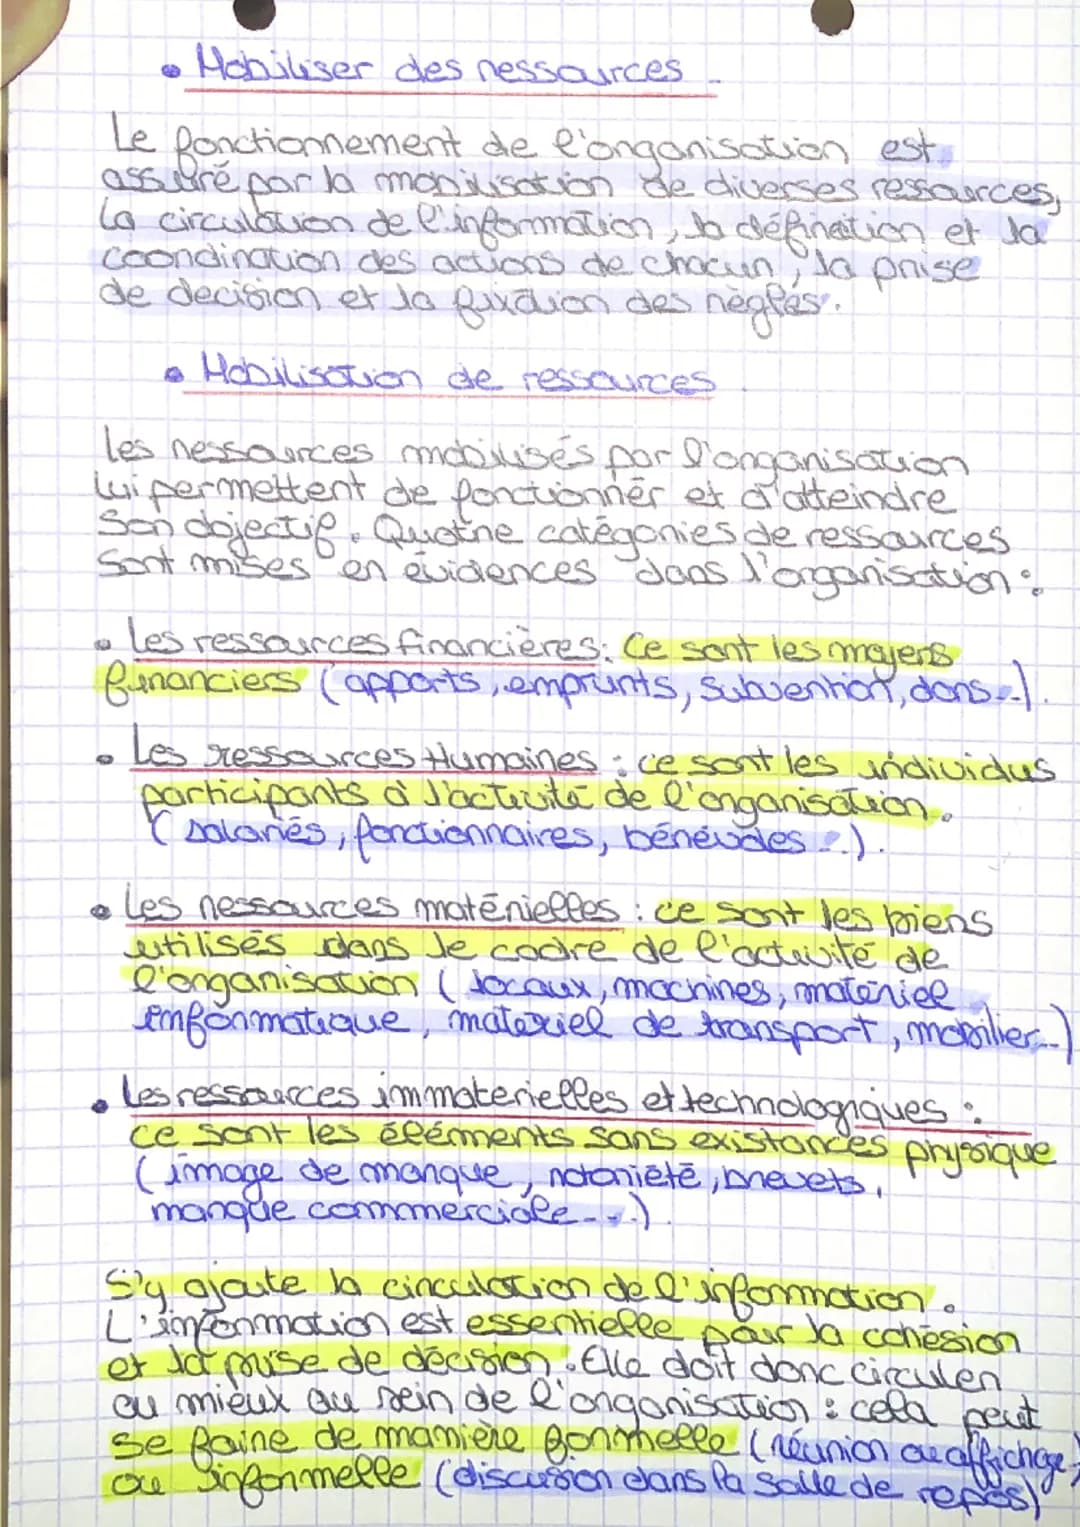 • Mobiliser des ressources.
Le fonctionnement de l'organisation est
assuré par la mobilisation de diverses ressources,
la circulation de l'information, la définition et la
coordination des actions de chacun, la prise
de decision et la fixation des règles.
• Mobilisation de ressources.
Les ressources mobilisés par l'organisation
lui permettent de fonctionner et d'atteindre
son objectif. Quatre catégories de ressources
sont mises en évidences dans l'organisation :
• Les ressources financières : Ce sont les moyens
financiers (apports, emprunts, subvention, dons...).
• Les ressources Humaines : ce sont les individus
participants à l'activité de l'organisation.
(salariés, fonctionnaires, bénévoles...).
• Les ressources matérielles : ce sont les biens
utilisés dans le cadre de l'activité de
l'organisation (locaux, machines, matériel
informatique, matériel de transport, mobilier...)
• Les ressources immaterielles et technologiques :
ce sont les éléments sans existances physique
(image de marque, notoriété, brevets,
marque commerciale...).
S'y ajoute la circulation de l'information.
L'information est essentielle pour la cohésion
et la prise de décision. Elle doit donc circuler
au mieux au sein de l'organisation : cela peut
se faire de manière formelle (réunion ou affichage)
ou informelle (discusion dans la salle de repos)